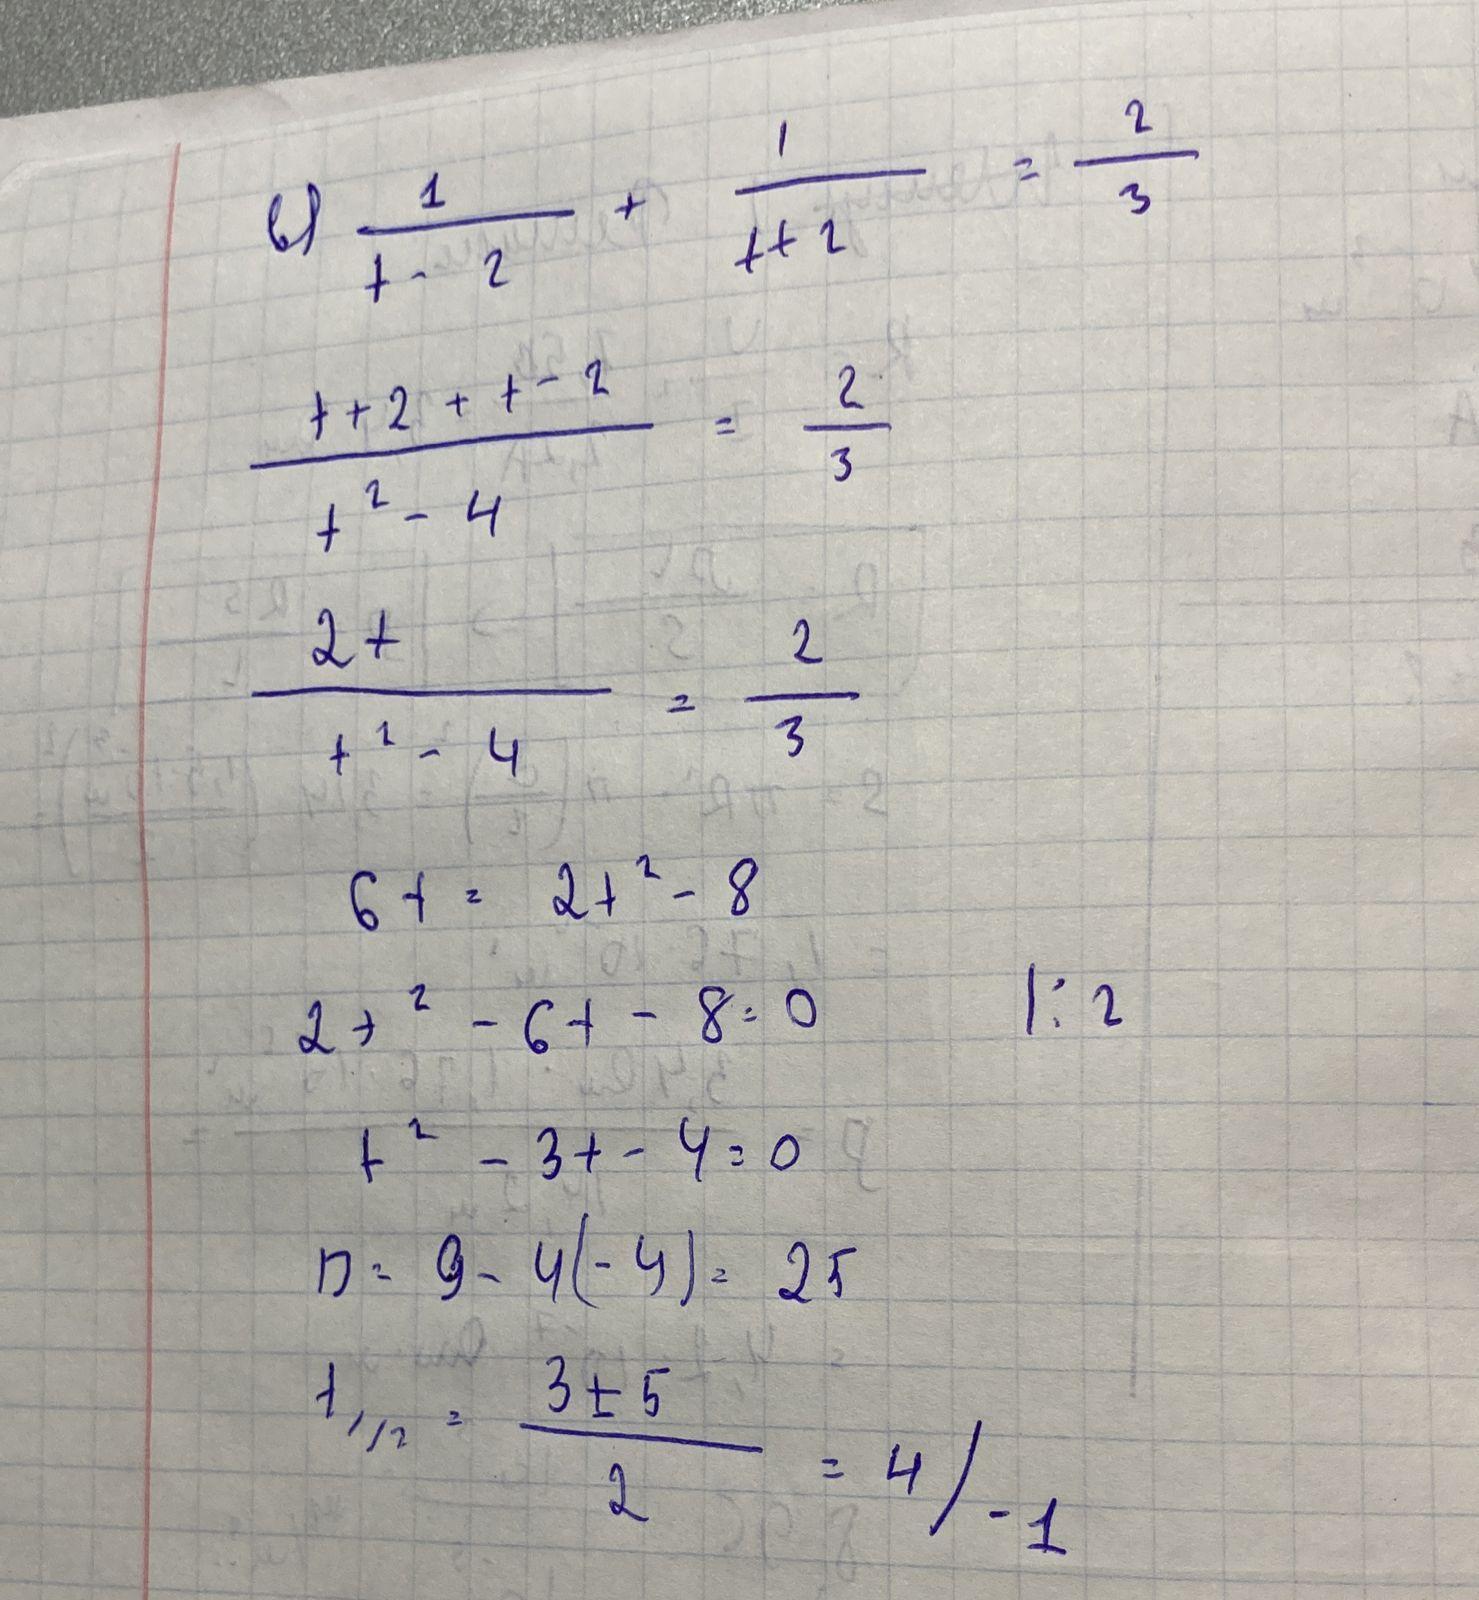 в) 1/(t - 2) + 1/(t + 2) = 2/3
(t + 2 + t - 2)/(t² - 4) = 2/3
2t/(t² - 4) = 2/3
6t = 2t² - 8
2t² - 6t - 8 = 0 |: 2
t² - 3t - 4 = 0
D = 9 - 4(-4) = 25
t₁/₂ = (3 ± 5)/2 = 4/-1